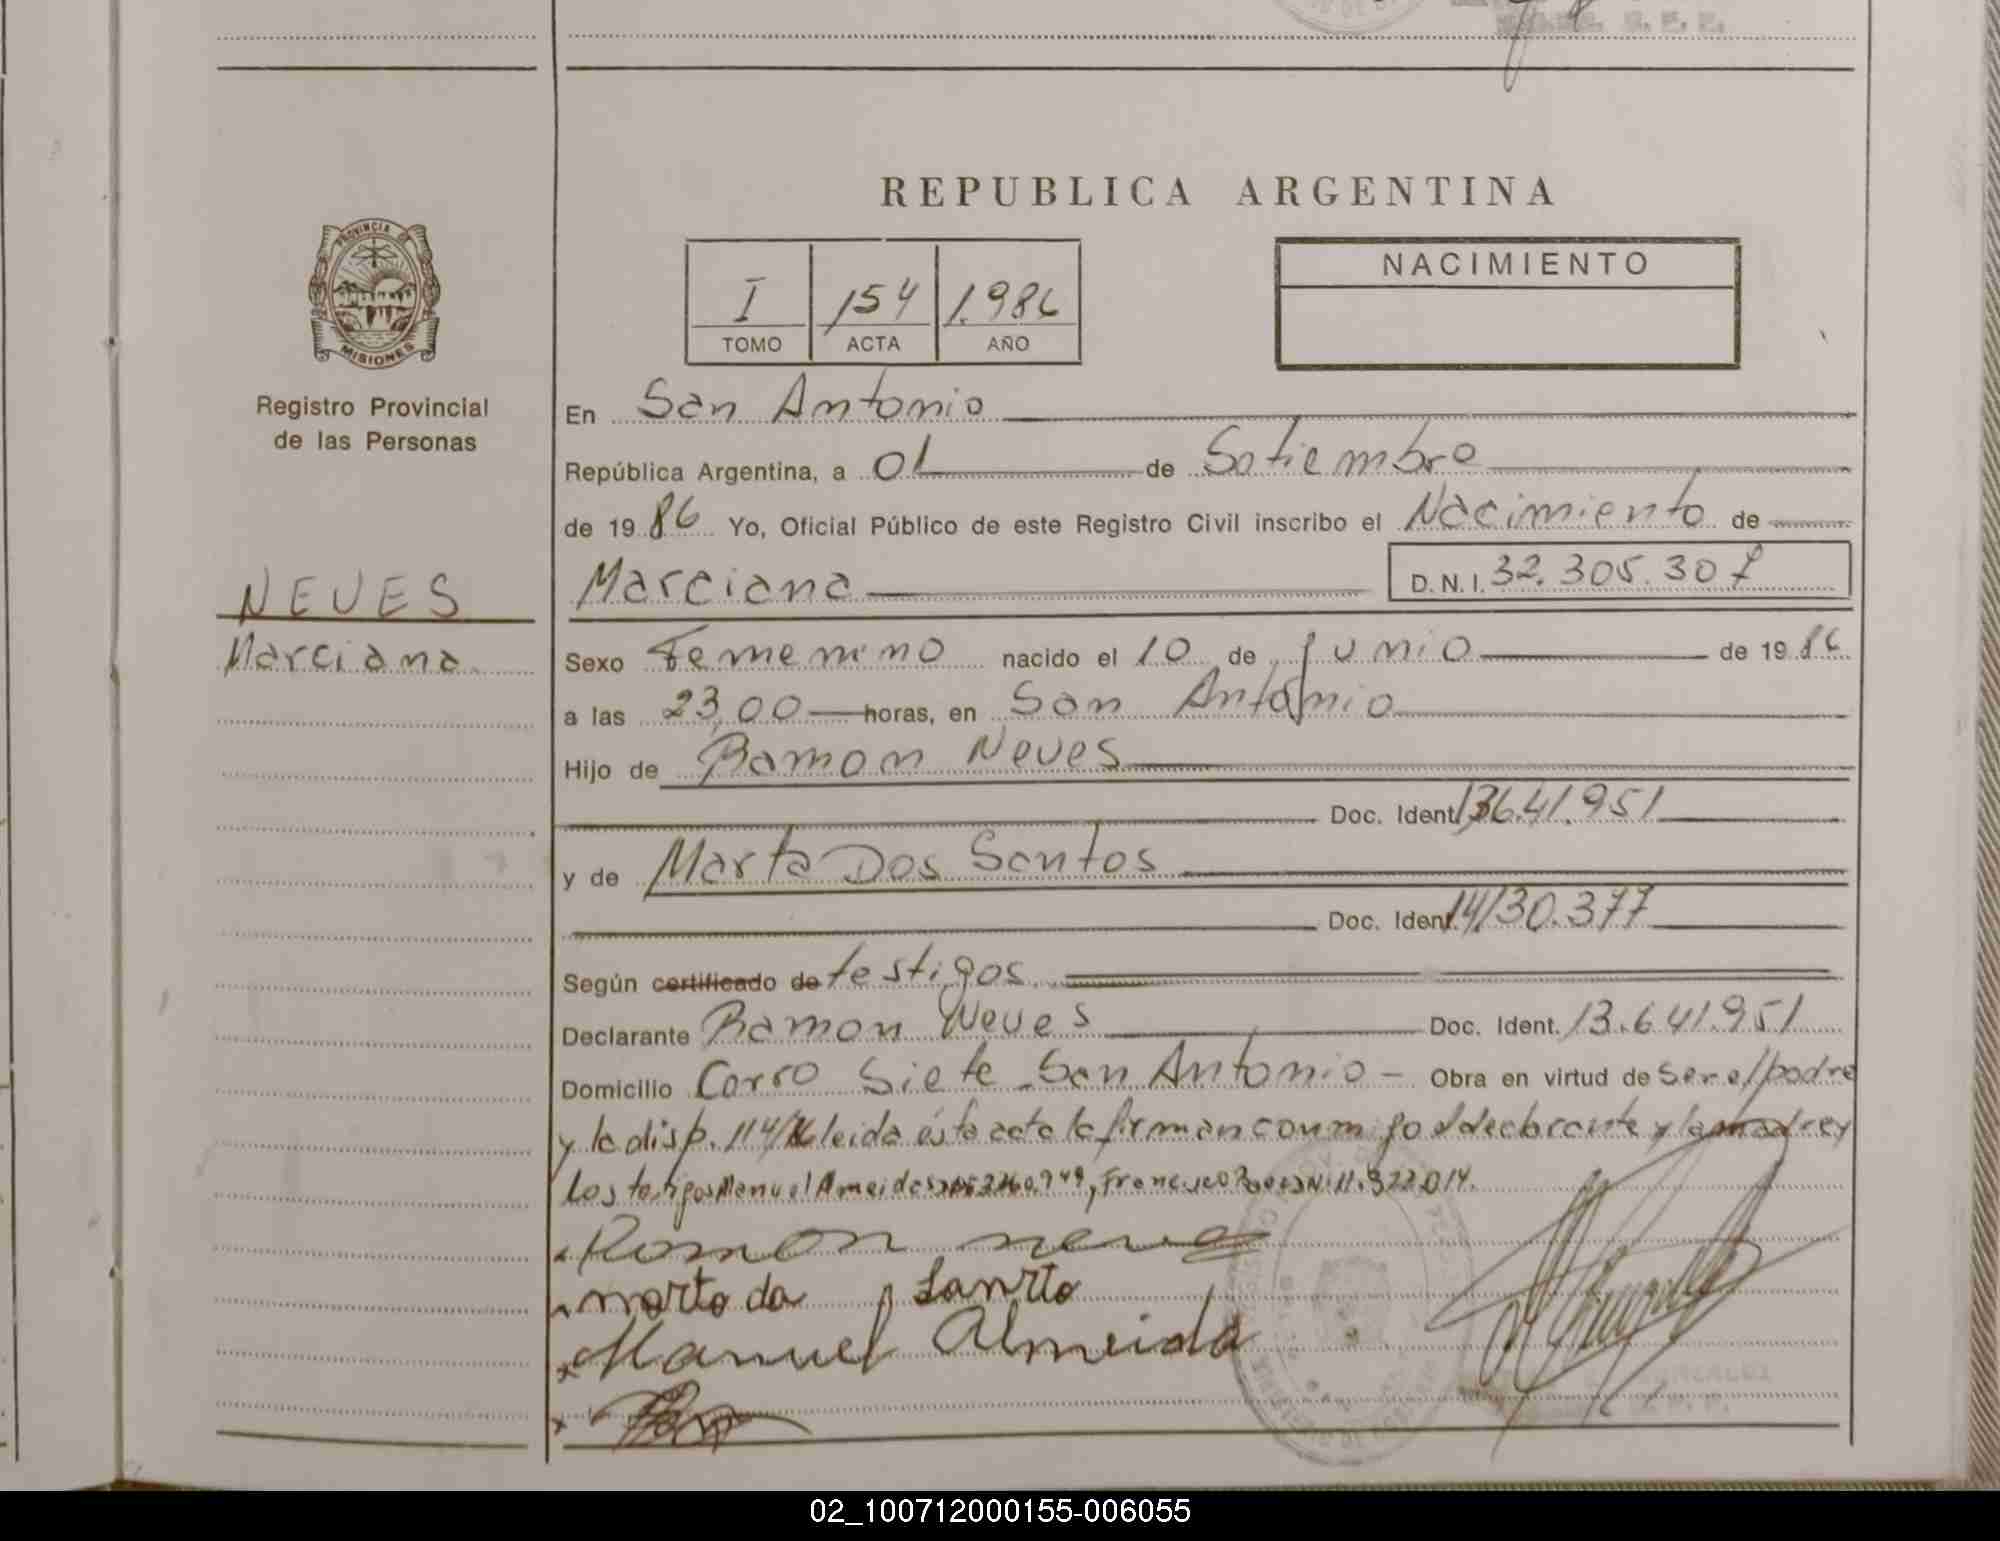 REPUBLICA ARGENTINA
PROVINCIA DE
MISIONES
Registro Provincial
de las Personas
NEVES
Marciana
I 154 1.986
TOMO ACTA AÑO
NACIMIENTO
En San Antonio
República Argentina, a 01 de Setiembre
de 1986 Yo, Oficial Público de este Registro Civil inscribo el Nacimiento de
Marciana D.N.I. 32.305.307
Sexo Femenino nacido el 10 de junio de 1986
a las 23,00 horas, en San Antonio
Hijo de Ramon Neves
Doc. Ident. 13641.951
y de Marta Dos Santos
Doc. Ident. 14130.377
Según certificado de testigos
Declarante Ramon Neves Doc. Ident. 13.641.951
Domicilio Corro Siete San Antonio - Obra en virtud de ser el padre
y la disp. 114/ leida ésta acta la firman conmigo el declarante y la madre y
los testigos Manuel Ameida Francisco N. 11.922.014.
x Ramon neves
x marta da Santto
x Manuel Almeida
x
02_100712000155-006055